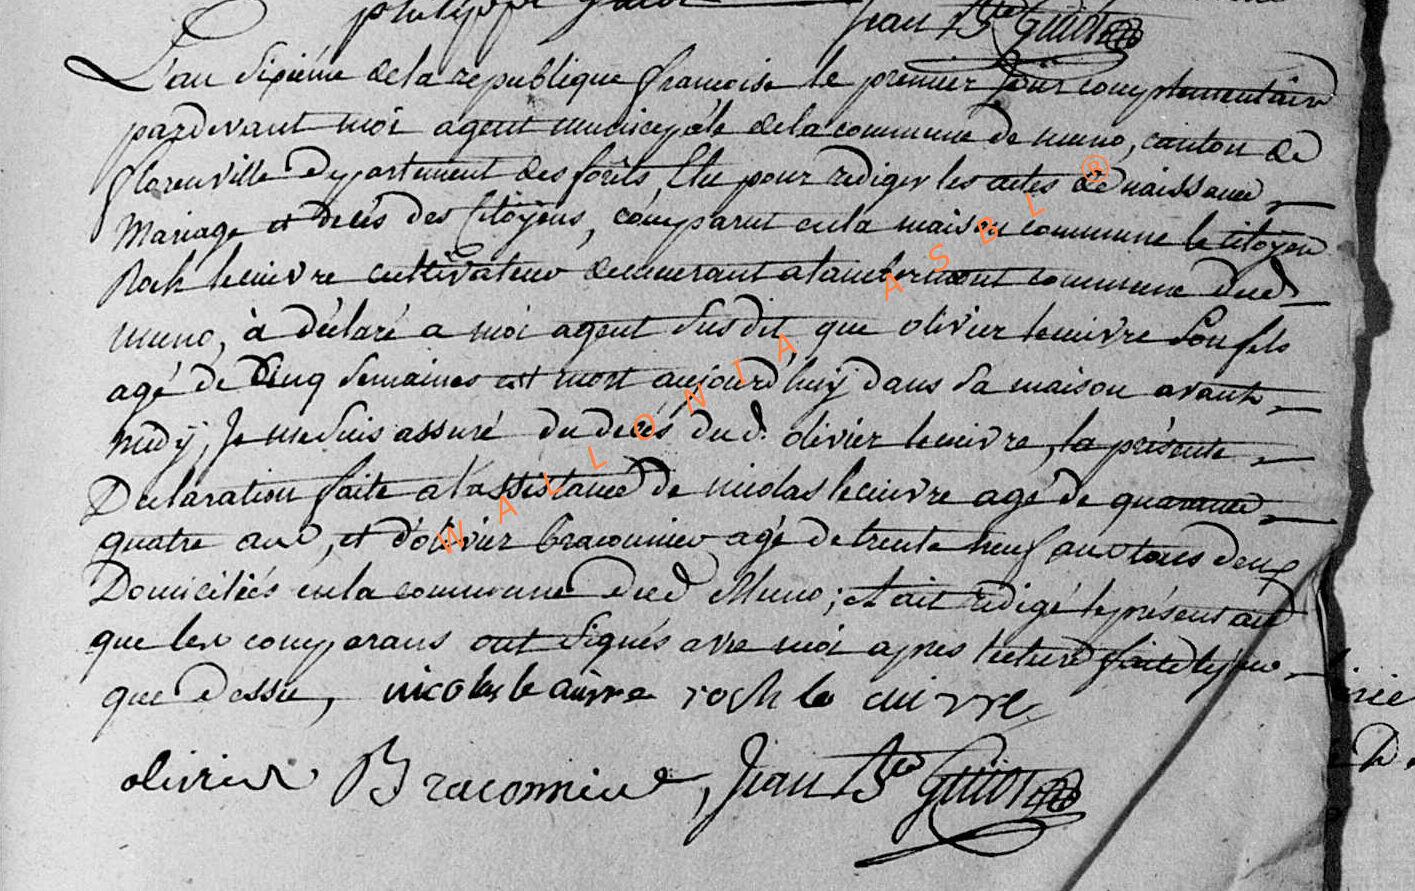 philippe Jean Bte Guiot
L'an sixieme de la republique francoise le premier jour complementaire
pardevant moi agent municipale de la commune de muno, canton de
florenville Departement des forêts, Elu pour rediger les actes de naissance,
Mariage et decés des Citoyens, comparut en la maison commune le citoyen
Roch lecuivre cultivateur demeurant a lambermont commune dud
muno, à déclaré a moi agent susdit que olivier lecuivre son fils
agé de Cinq semaines est mort aujourd'huÿ dans sa maison avant
midÿ, Je me suis assuré du decés dud. olivier lecuivre, la présente
Declaration faite a l'assistance de nicolas lecuivre agé de quarante
quatre ans, et d'olivier braconnier agé de trente neuf ans tous deux
Domiciliés en la commune dud Muno; et ait redigé le présent acte
que les comparans ont signés avec moi apres lecture faite les jour
que dessu, nicolas le cuivre roch le cuivre
olivier Braconnier, Jean Bte Guiot
WALLONIA ASBL ®